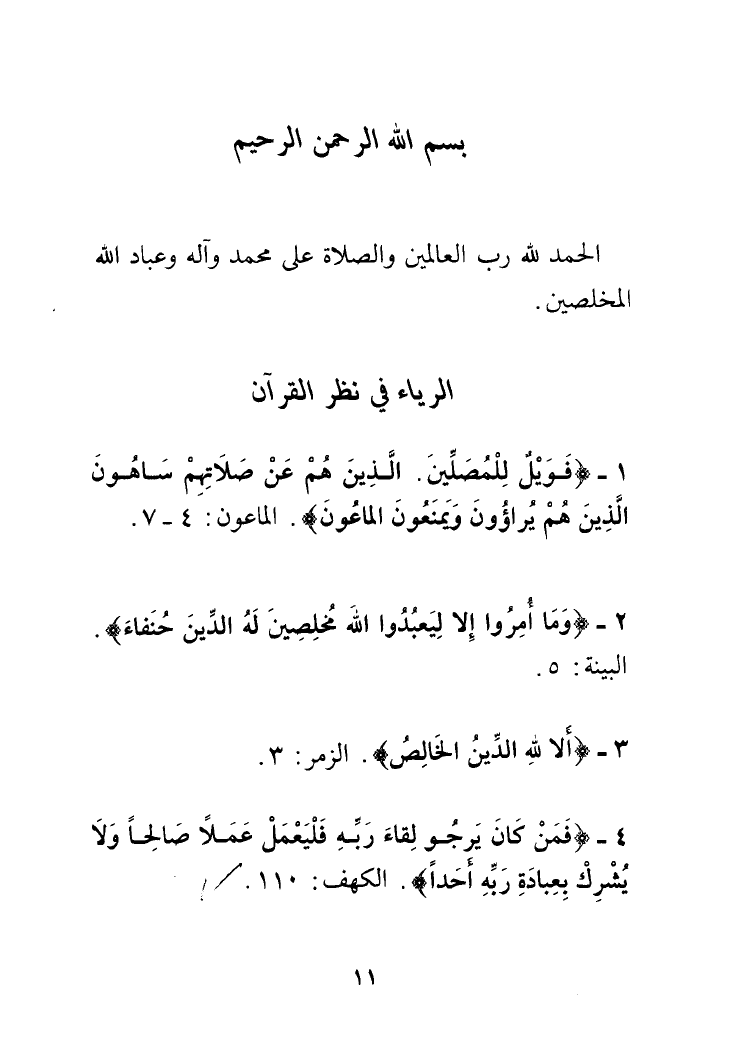 بسم الله الرحمن الرحيم
الحمد لله رب العالمين والصلاة على محمد وآله وعباد الله
المخلصين .
الرياء في نظر القرآن
١ ـ ﴿فَـوَيْلٌ لِلْمُصَلِّينَ. الَّـذِينَ هُمْ عَنْ صَلَاتِهِمْ سَـاهُـونَ
الَّذِينَ هُمْ يُراؤُونَ وَيَمنَعُونَ الماعُونَ﴾ . الماعون : ٤ ـ ٧ .
٢ ـ ﴿وَمَا أُمِرُوا إِلا لِيَعبُدُوا اللهَ مُخلِصِينَ لَهُ الدِّينَ حُنَفاءَ﴾ .
البينة : ٥ .
٣ ـ ﴿أَلا لله الدِّينُ الخَالِصُ﴾ . الزمر : ٣ .
٤ ـ ﴿فَمَنْ كَانَ يَرجُـو لِقاءَ رَبِّـهِ فَلْيَعْمَلْ عَمَـلًا صَالِحـاً وَلَا
يُشْرِكْ بِعِبادَةِ رَبِّهِ أَحَداً﴾ . الكهف : ١١٠ .
١١